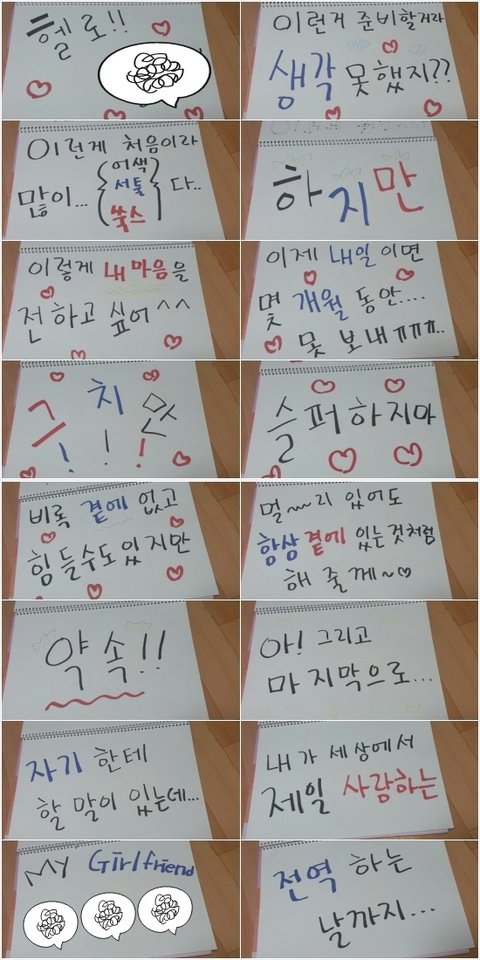 헬로!!
이런거 준비할거라
생각 못했지??
이런게 처음이라
많이... {어색 서툴 쑥스} 다..
하지만
이렇게 내 마음을
전하고 싶어^^
이제 내일이면
몇 개월 동안....
못 보내 ㅠㅠㅠ..
그치만
!!!
슬퍼하지마
비록 곁에 없고
힘들수도 있지만
멀~~리 있어도
항상 곁에 있는것처럼
해 줄께~♡
약속!!
아! 그리고
마지막으로...
자기 한테
할 말이 있는데...
내가 세상에서
제일 사랑하는
My Girlfriend
전역 하는
날까지...